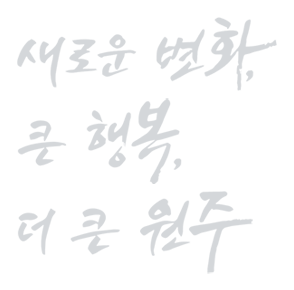 새로운 변화,
큰 행복,
더 큰 원주